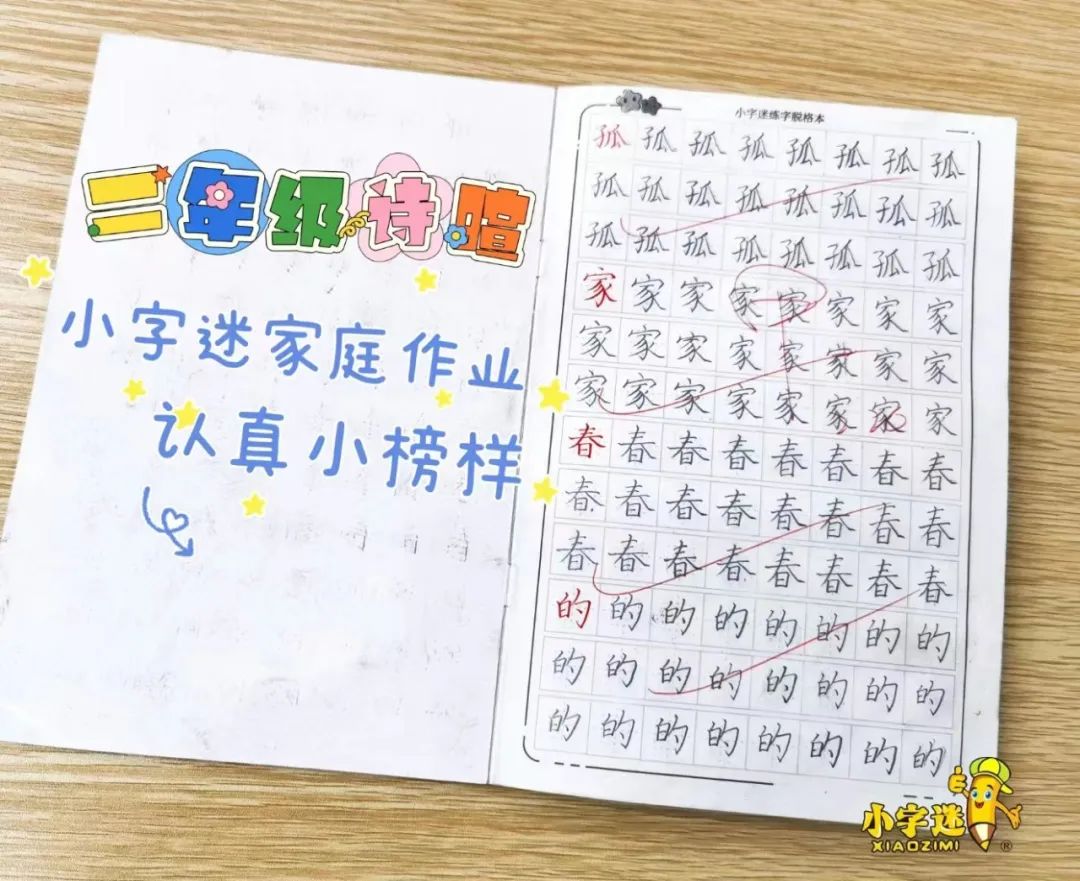 二年级诗暄
小字迷家庭作业
认真小榜样
小字迷练字脱格本
孤孤孤孤孤孤孤孤
孤孤孤孤孤孤孤孤
孤孤孤孤孤孤孤孤
家家家家家家家家
家家家家家家家家
家家家家家家家家
春春春春春春春春
春春春春春春春春
春春春春春春春春
的的的的的的的的
的的的的的的的的
的的的的的的的的
小字迷
XIAOZIMI
®